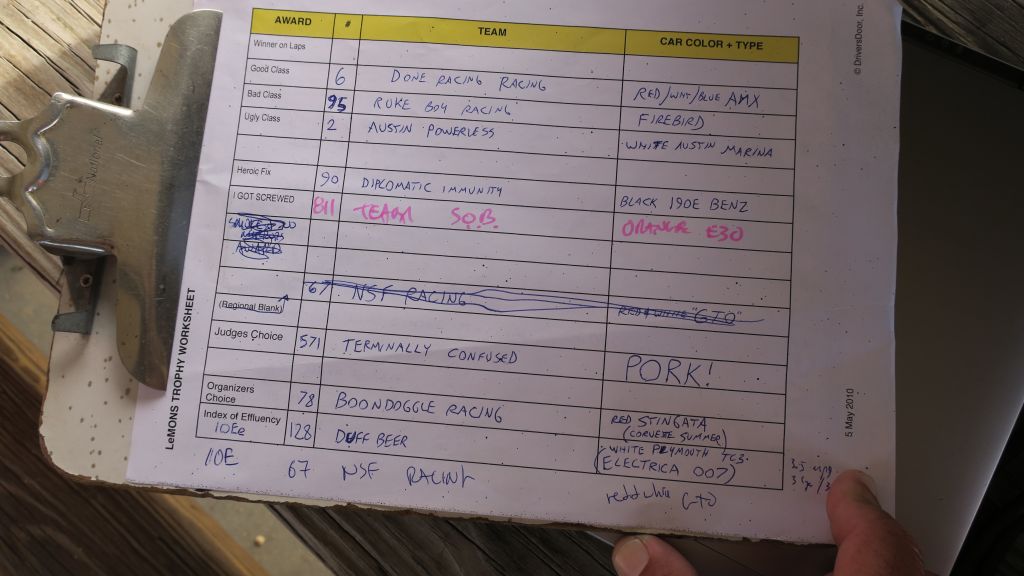 AWARD # TEAM CAR COLOR + TYPE
Winner on Laps
Good Class 6 DONE RACING RACING RED/WHT/BLUE AMX
Bad Class 95 RUKE BOY RACING FIREBIRD
Ugly Class 2 AUSTIN POWERLESS WHITE AUSTIN MARINA
Heroic Fix 90 DIPLOMATIC IMMUNITY BLACK 190E BENZ
I GOT SCREWED 811 TEAM S.O.B. ORANGE E30
67 NSF RACING RED & WHITE "GTO"
(Regional Blank)
Judges Choice 571 TERMINALLY CONFUSED PORK!
Organizers
Choice 78 BOONDOGGLE RACING RED STINGATA
(CORVETTE SUMMER)
Index of Effluency 128 DUFF BEER WHITE PLYMOUTH TC3
IOEe (ELECTRICA 007)
IOE 67 NSF RACING GTO
LeMONS TROPHY WORKSHEET
5 May 2010
© DriversDoor, Inc.